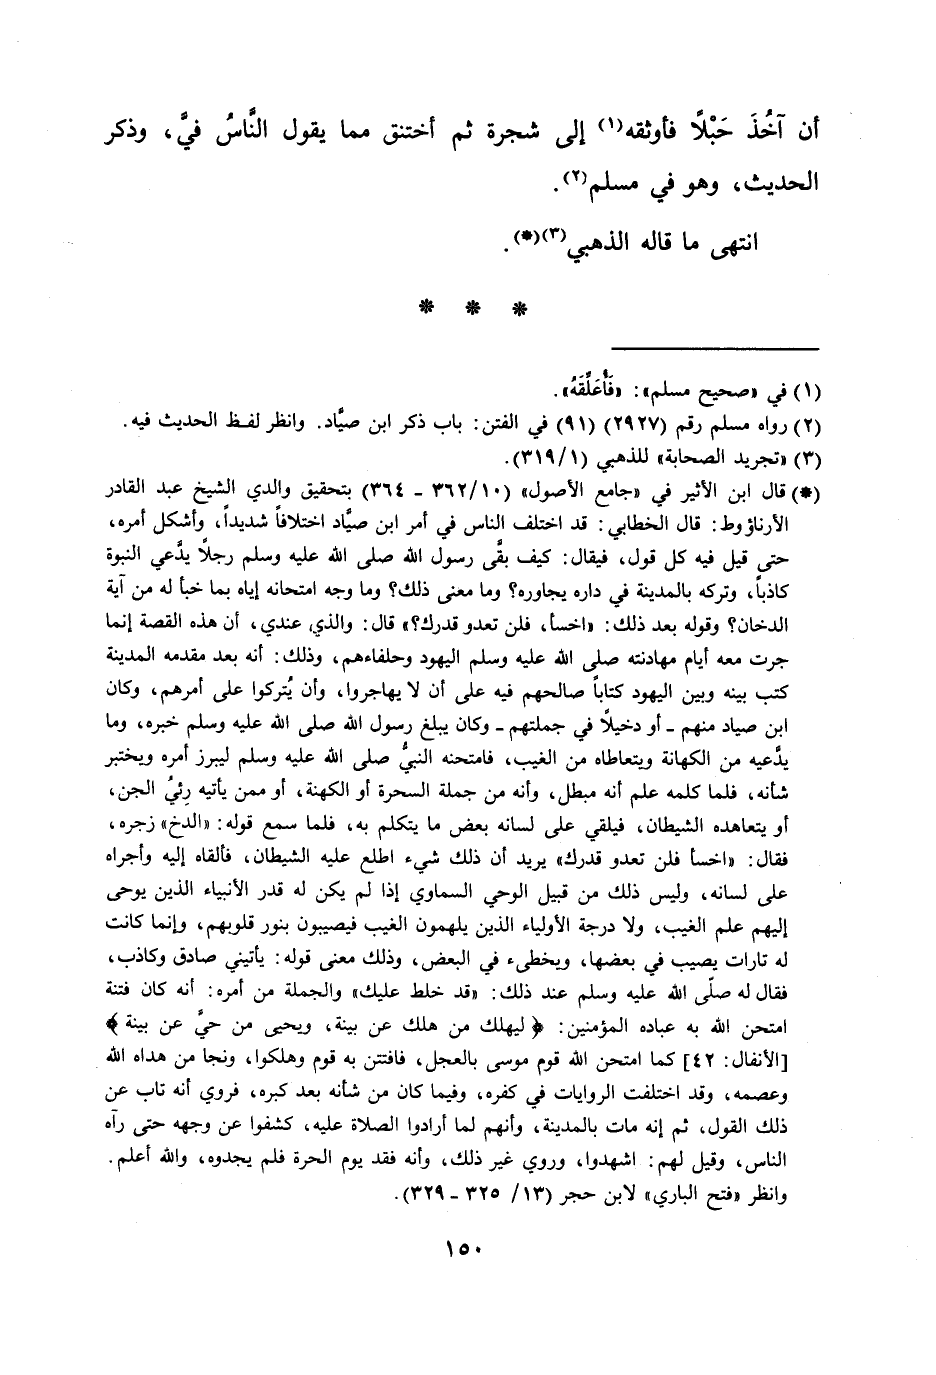 أن آخُذَ حَبْلًا فأوثقه(١) إلى شجرة ثم أختنق مما يقول النَّاسُ فيَّ، وذكر
الحديث، وهو في مسلم(٢).
انتهى ما قاله الذهبي(٣)(*).
* * *
(١) في «صحيح مسلم»: «فَأُعَلِّقَهُ».
(٢) رواه مسلم رقم (٢٩٢٧) (٩١) في الفتن: باب ذكر ابن صيَّاد. وانظر لفظ الحديث فيه.
(٣) «تجريد الصحابة» للذهبي (٣١٩/١).
(*) قال ابن الأثير في «جامع الأصول» (٣٦٢/١٠ ـ ٣٦٤) بتحقيق والدي الشيخ عبد القادر
الأرناؤوط: قال الخطابي: قد اختلف الناس في أمر ابن صيَّاد اختلافاً شديداً، وأشكل أمره،
حتى قيل فيه كل قول، فيقال: كيف بقَّى رسول الله صلى الله عليه وسلم رجلاً يدَّعي النبوة
كاذباً، وتركه بالمدينة في داره يجاوره؟ وما معنى ذلك؟ وما وجه امتحانه إياه بما خبأ له من آية
الدخان؟ وقوله بعد ذلك: «اخسأ، فلن تعدو قدرك؟» قال: والذي عندي، أن هذه القصة إنما
جرت معه أيام مهادنته صلى الله عليه وسلم اليهود وحلفاءهم، وذلك: أنه بعد مقدمه المدينة
كتب بينه وبين اليهود كتاباً صالحهم فيه على أن لا يهاجروا، وأن يُتركوا على أمرهم، وكان
ابن صياد منهم ـ أو دخيلاً في جملتهم ـ وكان يبلغ رسول الله صلى الله عليه وسلم خبره، وما
يدَّعيه من الكهانة ويتعاطاه من الغيب، فامتحنه النبيُّ صلى الله عليه وسلم ليبرز أمره ويختبر
شأنه، فلما كلمه علم أنه مبطل، وأنه من جملة السحرة أو الكهنة، أو ممن يأتيه رِئيُ الجن،
أو يتعاهده الشيطان، فيلقي على لسانه بعض ما يتكلم به، فلما سمع قوله: «الدخ» زجره،
فقال: «اخسأ فلن تعدو قدرك» يريد أن ذلك شيء اطلع عليه الشيطان، فألقاه إليه وأجراه
على لسانه، وليس ذلك من قبيل الوحي السماوي إذا لم يكن له قدر الأنبياء الذين يوحى
إليهم علم الغيب، ولا درجة الأولياء الذين يلهمون الغيب فيصيبون بنور قلوبهم، وإنما كانت
له تارات يصيب في بعضها، ويخطىء في البعض، وذلك معنى قوله: يأتيني صادق وكاذب،
فقال له صلّى الله عليه وسلم عند ذلك: «قد خلط عليك» والجملة من أمره: أنه كان فتنة
امتحن الله به عباده المؤمنين: ﴿ ليهلك من هلك عن بينة، ويحيى من حيَّ عن بينة ﴾
[الأنفال: ٤٢] كما امتحن الله قوم موسى بالعجل، فافتتن به قوم وهلكوا، ونجا من هداه الله
وعصمه، وقد اختلفت الروايات في كفره، وفيما كان من شأنه بعد كبره، فروي أنه تاب عن
ذلك القول، ثم إنه مات بالمدينة، وأنهم لما أرادوا الصلاة عليه، كشفوا عن وجهه حتى رآه
الناس، وقيل لهم: اشهدوا، وروي غير ذلك، وأنه فقد يوم الحرة فلم يجدوه، والله أعلم.
وانظر «فتح الباري» لابن حجر (١٣/ ٣٢٥ ـ ٣٢٩).
١٥٠